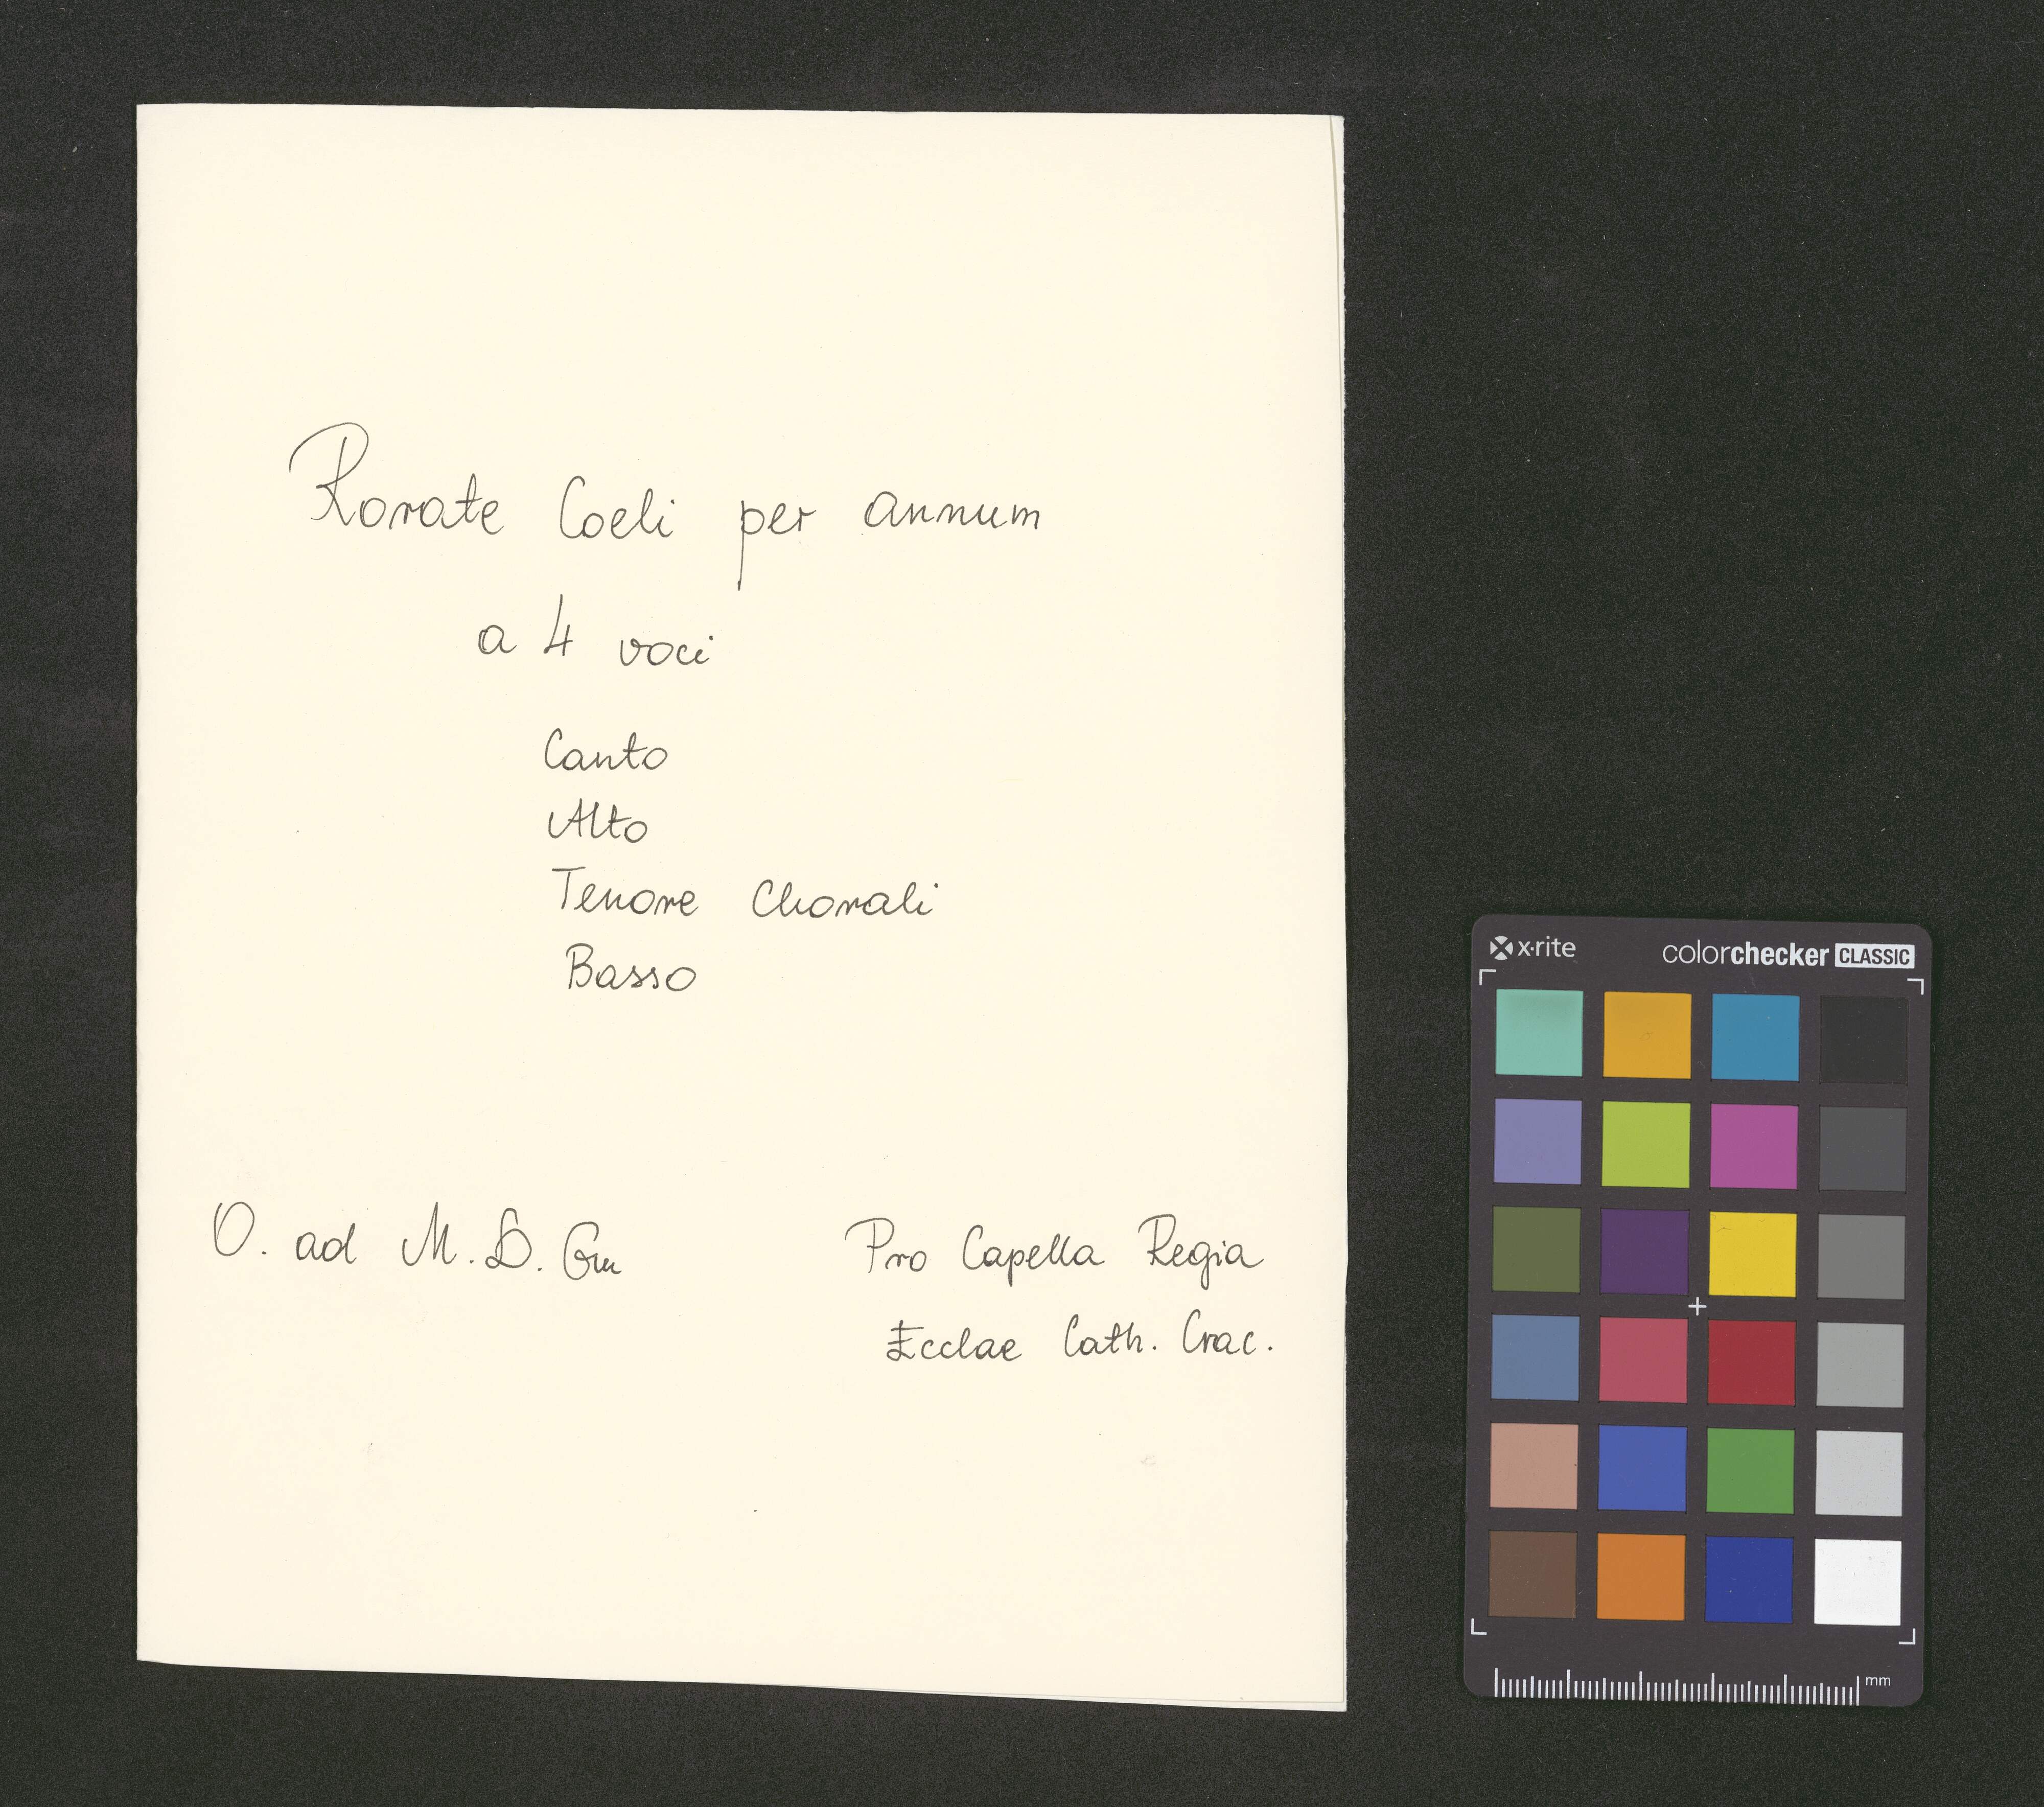 Rorate Coeli per annum
a 4 voci
Canto
Alto
Tenore Chorali
Basso
O. ad M. D. Gm
Pro Capella Regia
Ecclae Cath. Crac.
x-rite
colorchecker CLASSIC
mm